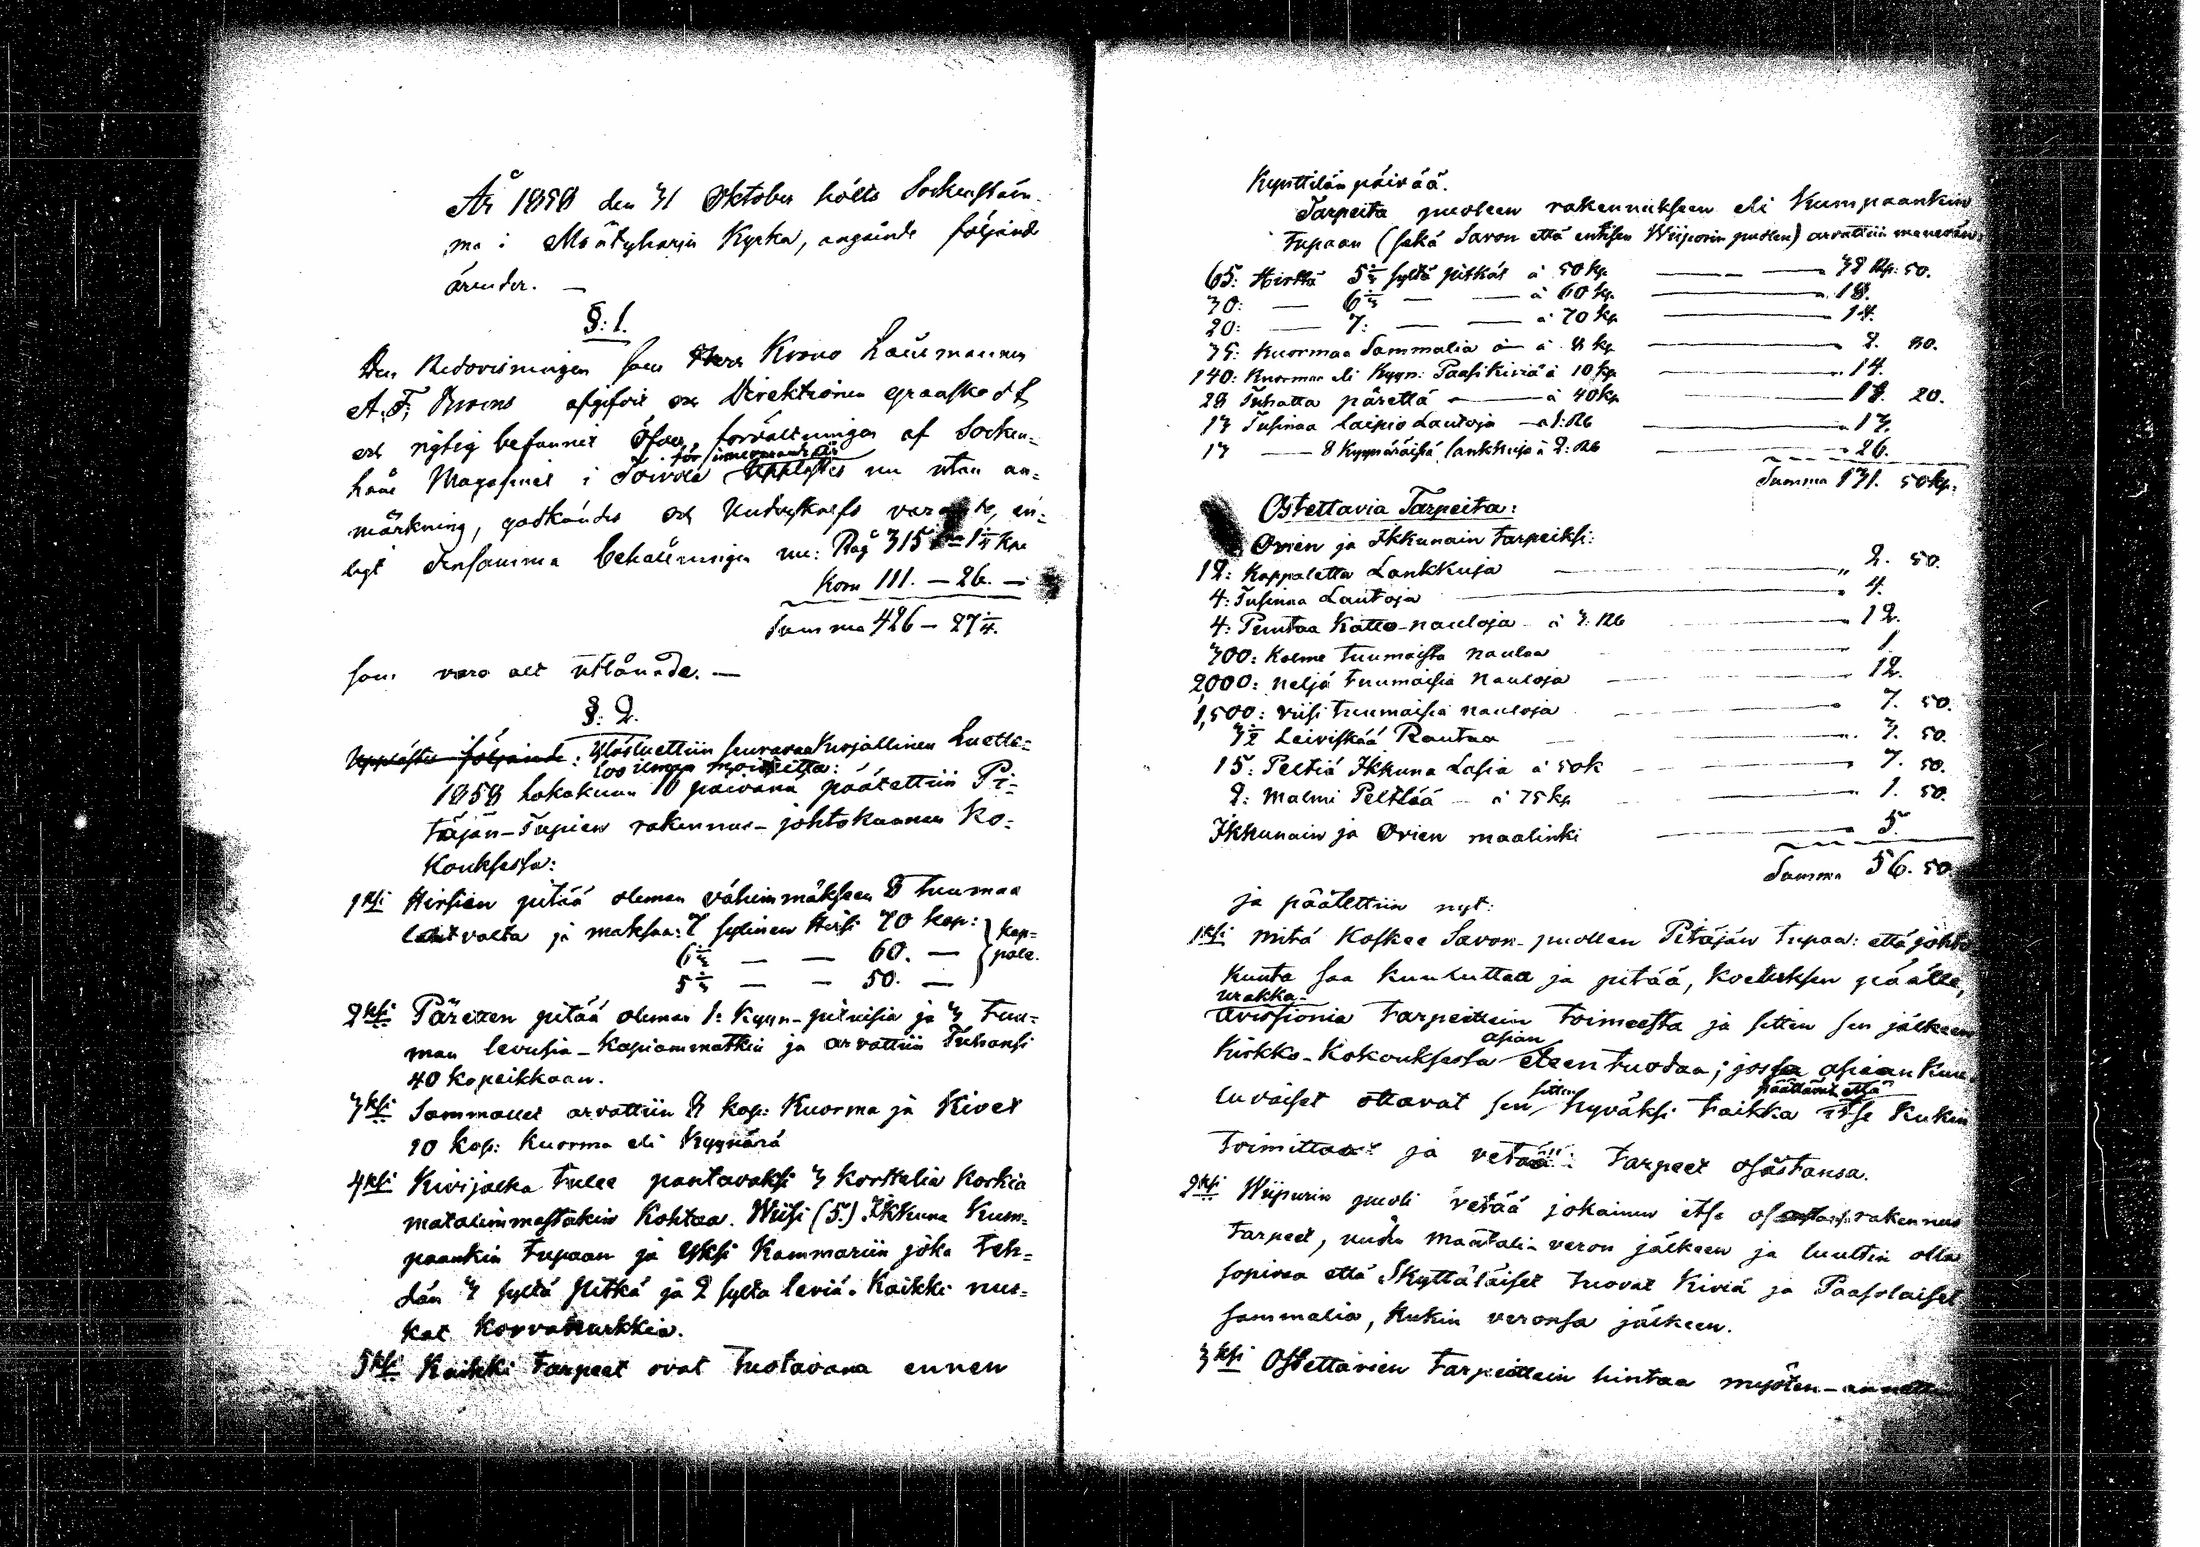 År 1858 den 31 Oktober hölts Sockenstäm-
ma i Mäntyharju Kyrka, angående följande
ärender. —
§: 1.
Den Redovisningen som Herr Krono Länsmannen
A. F. afgifvit och Direktionen granskat
och rigtig befunnit öfver förvaltningen af Socken-
för innevarande år
låne Magasinet i Toivola upplästes nu utan an-
märkning, godkändes och utvistes vara, en-
ligt Tensamma behållningen nu: Råg 315 1 3/4 Kpr
Korn 111. — 26. —
Summa 426 — 27 3/4.
som voro alt utlånade. —
§: 2.
Upplästes följande: Ylösluettiin seuraavaa Kirjallinen Luette-
loo ilman moitetta:
1858 Lokakuun 10 päivänä päätettiin Pi-
täjän-Tupien rakennus-johtokunnan Ko-
kouksessa:
1ksi Hirsien pitää oleman vähimmäksen 8 tuumaa
latvalta ja maksaa: 7 sylinen Hirsi 70 kop:
6 1/2 — — 60. — kap-
5 1/2 — — 50. — pale.
2ksi Päreten pitää oleman 1: Kyyn-pituisia ja 3 tuu-
man levusia-Kopiammatkin ja arvattiin Tuhansi
40 kopeikkaan.
3ksi Sammalet arvattiin 8 kop: Kuorma ja Kivet
10 kop: Kuorma eli Kyynärä
4ksi Kivijalka tulee pantavaksi 3 Korttelia Korkia
matalimmastakin Kohtaa. Wiisi (5.) Ikkuna Kum-
paankin tupaan ja yksi Kammariin joka teh-
dän 3 syltä pitkä ja 2 syltä leviä. Kaikki nur-
kat Korvanurkkia.
5ksi Kaikki Tarpeet ovat tuotavana ennen
Kynttilän päivää.
Tarpeita puoleen rakennukseen eli Kumpaankin
tupaan (sekä Savon että entisen Wiiporin puolen) arvattiin menevän,
65: Hirttä 5 1/2 syltä pitkät á 50 kp. — — 32 Rp: 50.
30: — 6 1/2 — — á 60 kp. — 18.
20: — 7: — — á 70 kp — 14.
35: Kuormaa Sammalia — á 8 kp — 2. 80.
140: Kuormaa eli Kyyn: Paasi Kiviä á 10 kp — 14.
28 Tuhatta pärettä — á 40 kp — 11. 20.
13 Tusinaa laipio Lautoja — á 1: Rb — 13.
13 — 8 Kyynäräisiä lankkuja á 2: Rb — 26.
Summa 131. 50 kp.
Ostettavia Tarpeita:
Ovien ja Ikkunain tarpeiksi:
12: Kappaletta Lankkuja — „ 2. 50.
4: Tusinaa Lautoja — 4.
4: Puntaa Katto-nauloja á 3: Rb — 12.
300: Kolme tuumaista naulaa — 1
2,000: neljä tuumaisia nauloja — 12.
1,500: viisi tuumaisia nauloja — 7. 50.
3 1/2 Leiviskää Rautaa — 3. 50.
15: Peltiä Ikkuna Lasia á 50 k — 7. 50.
2: Malmi Peltlää — á 75 kp — 1. 50.
Ikkunain ja Ovien maalinki — 5.
Summa 56. 50.
ja päätettiin nyt:
1ksi mitä Koskee Savon-puollen Pitäjän tupaa: että johto
kunta saa kuuluttaa ja pitää, koetuksen päälle,
urakka-
avissionia tarpeittein toimeesta ja sitten sen jälkeen
asian
Kirkko-Kokouksessa eteen tuodaa; jossa asiaan kuu-
sitten päättävät että
luvaiset ottavat sen hyväksi taikka itse Kukin
toimittaa ja vetää tarpeet osastansa.
2ksi Wiipurin puoli vetää jokainen itse rakennus
tarpeet, mäntali-veron jälkeen ja luultin olla
sopivaa että Skyttäläiset tuovat Kiviä ja Paasolaiset
sammalia, Kukin veronsa jälkeen.
3ksi Ostettavien tarpeittein hintaa myöten-